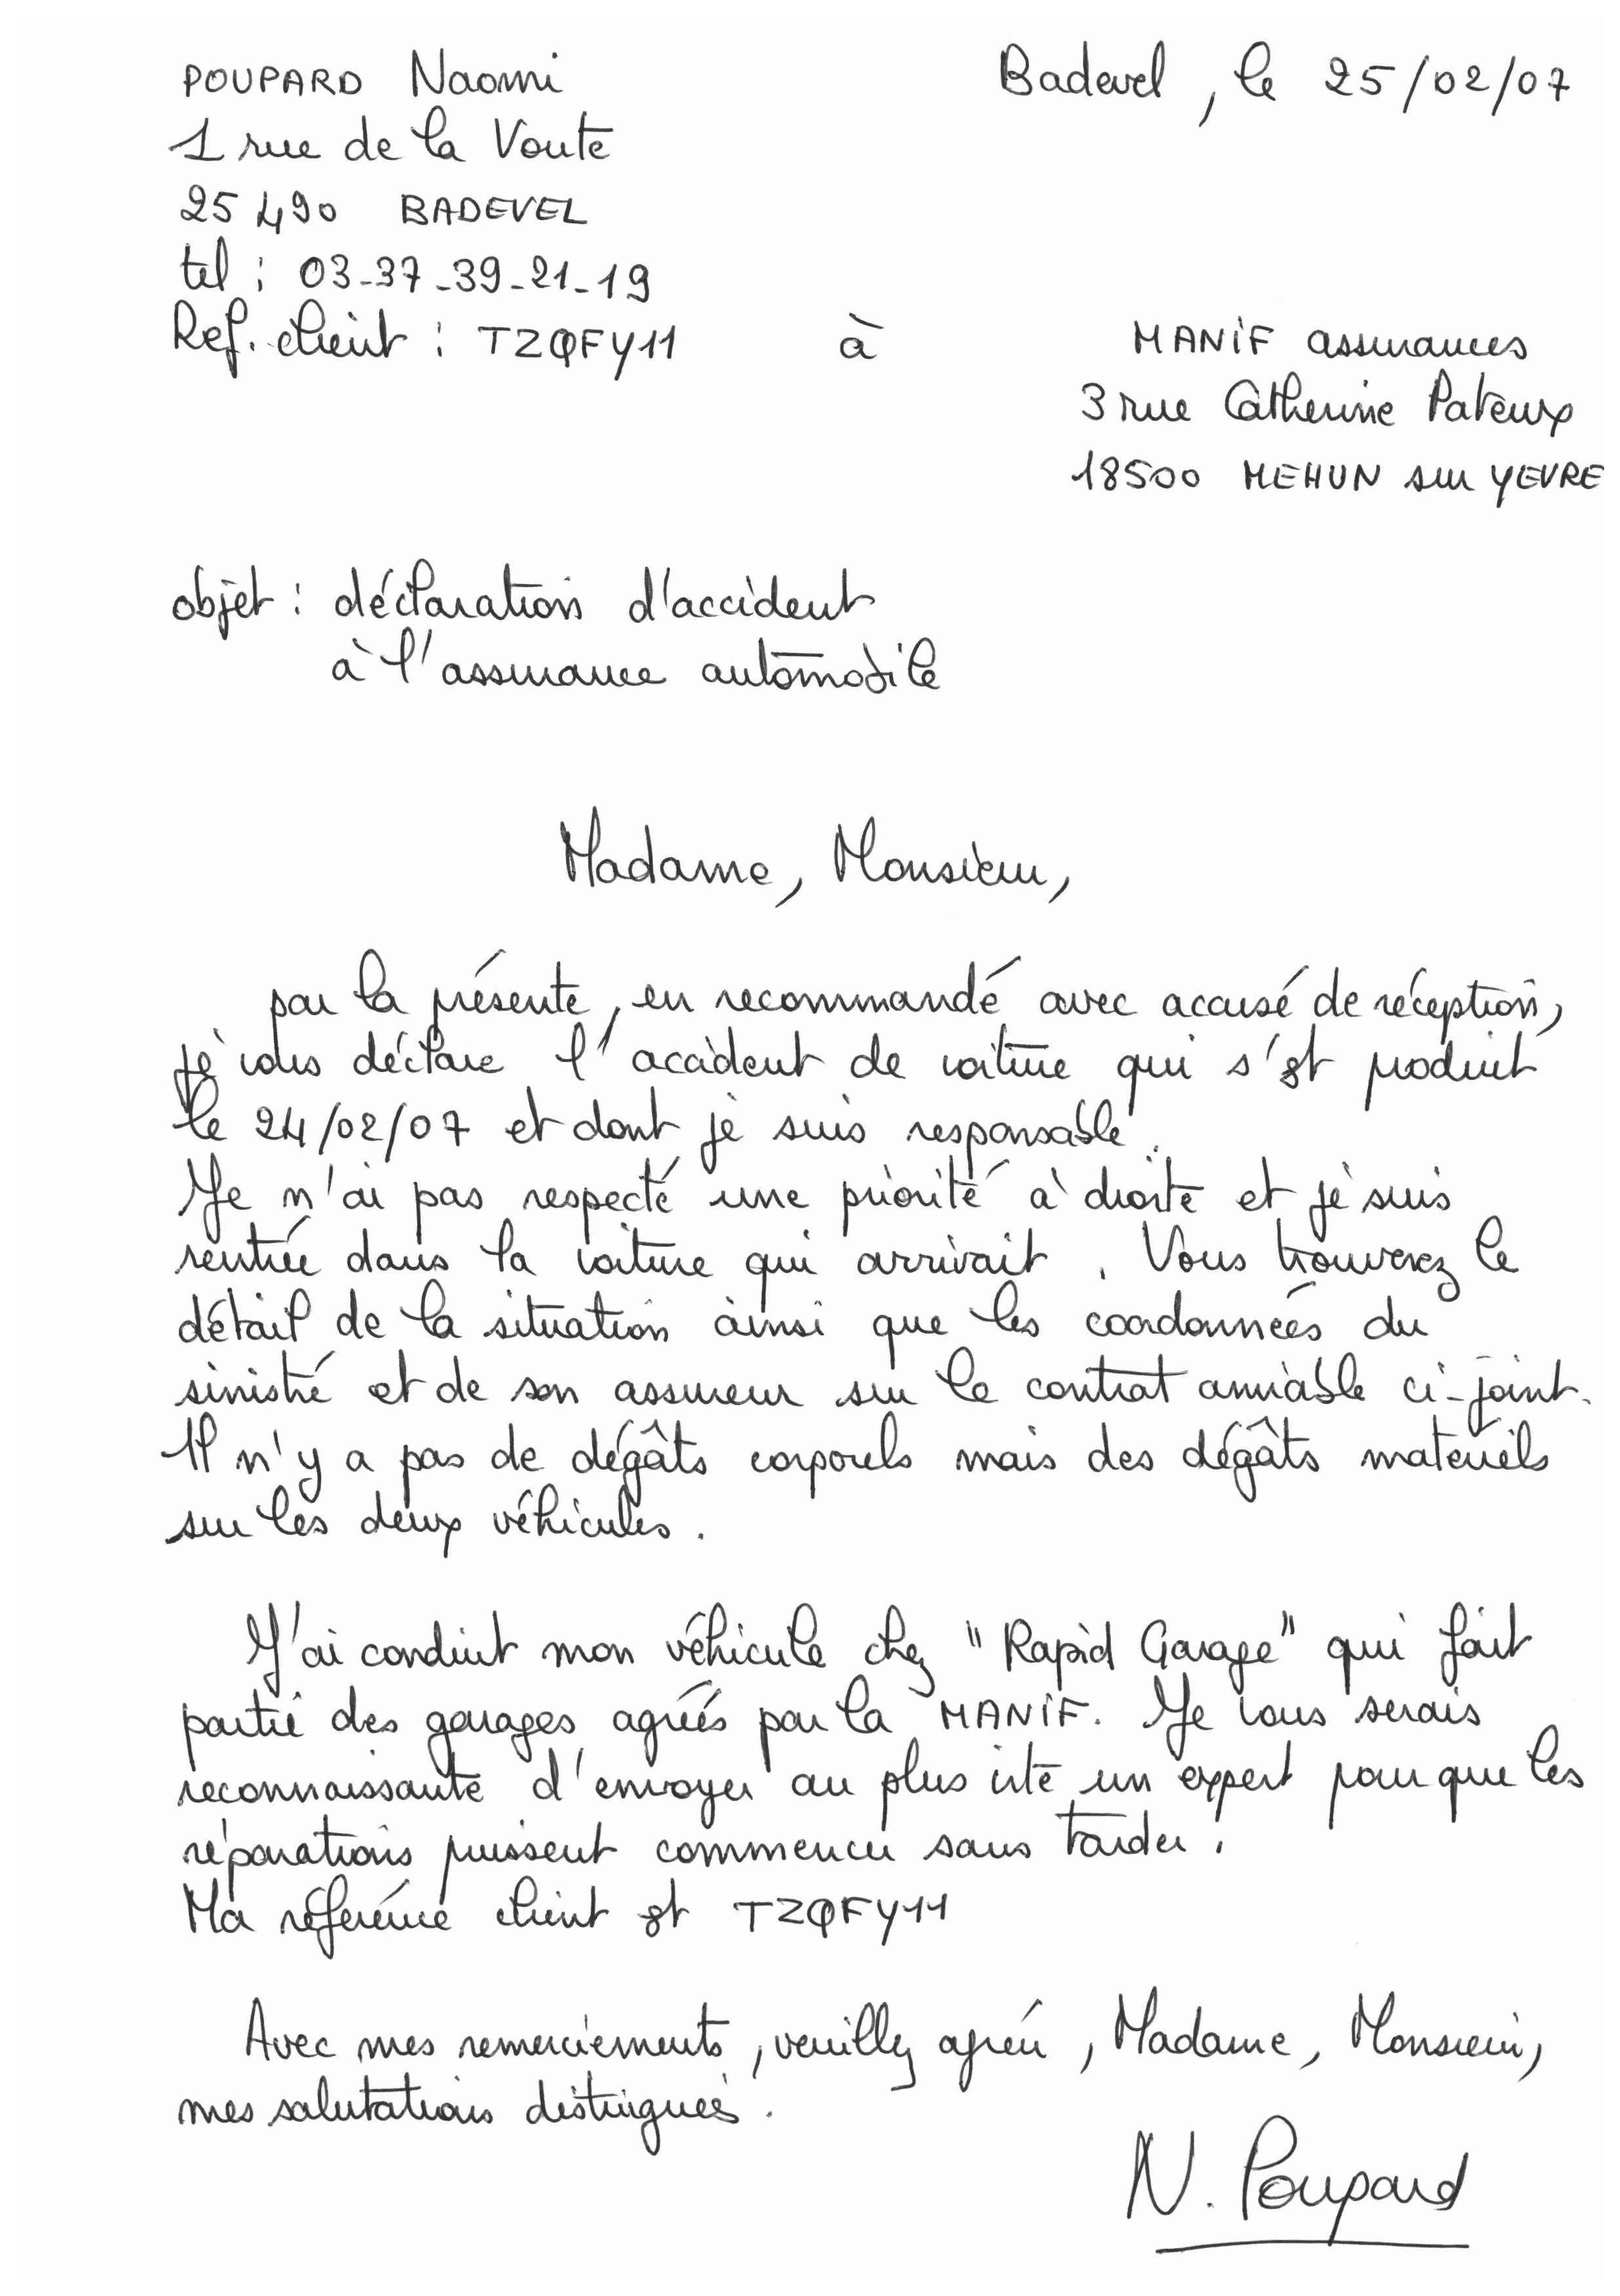 POUPARD Naomi
Badevel, le 25/02/07
1 rue de la Voute
25 490 BADEVEL
tel : 03-37-39-21-19
Ref. client : TZQFY11
à
MANIF assurances
3 rue Catherine Pateux
18500 MEHUN sur YEVRE
objet : déclaration d'accident
à l'assurance automobile
Madame, Monsieur,
par la présente, en recommandé avec accusé de réception,
je vous déclare l'accident de voiture qui s'est produit
le 24/02/07 et dont je suis responsable.
Je n'ai pas respecté une priorité à droite et je suis
rentrée dans la voiture qui arrivait. Vous trouverez le
détail de la situation ainsi que les coordonnées du
sinistré et de son assureur sur le contrat amiable ci-joint.
Il n'y a pas de dégâts corporels mais des dégâts matériels
sur les deux véhicules.
J'ai conduit mon véhicule chez "Rapid Garage" qui fait
partie des garages agréés par la MANIF. Je vous serais
reconnaissante d'envoyer au plus vite un expert pour que les
réparations puissent commencer sans tarder.
Ma référence client est TZQFY11
Avec mes remerciements, veuillez agréer, Madame, Monsieur,
mes salutations distinguées.
N. Poupard